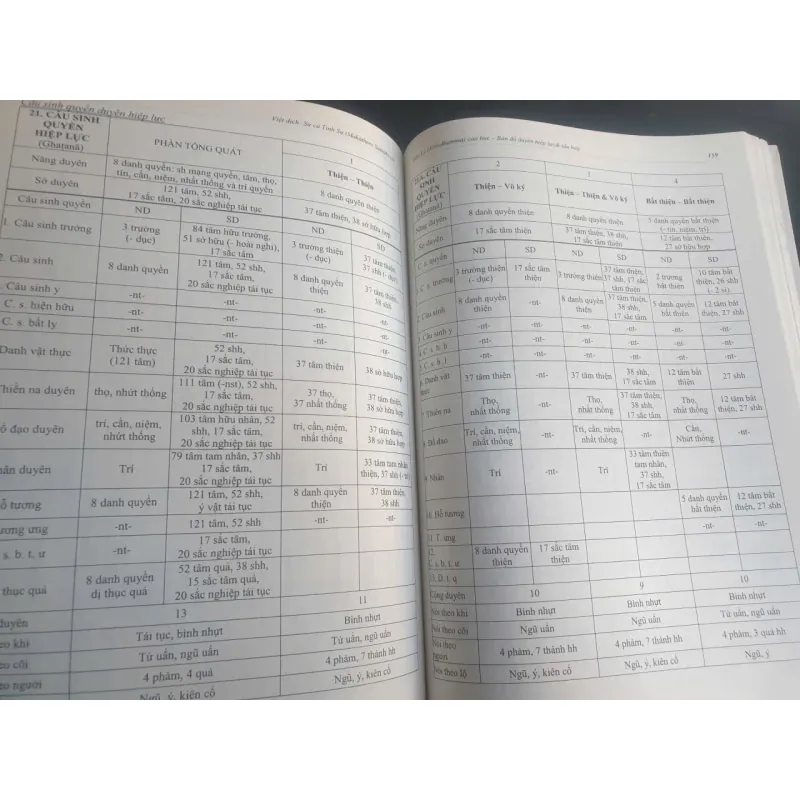 Câu sinh quyền duyên hiệp lực
Việt dịch: Sư cả Tịnh Sự
21. CÂU SINH
QUYỀN
HIỆP LỰC
(Ghaṭanā)
PHẦN TỔNG QUÁT
1
Thiện – Thiện
Năng duyên
8 danh quyền: sh mạng quyền, tâm, thọ,
tín, cần, niệm, nhất thống và trí quyền
8 danh quyền thiện
Sở duyên
121 tâm, 52 shh,
17 sắc tâm, 20 sắc nghiệp tái tục
37 tâm thiện, 38 sở hữu hợp
Câu sinh quyền
ND
SD
ND
SD
1. Câu sinh trưởng
3 trưởng
(- dục)
84 tâm hữu trưởng,
51 sở hữu (- hoài nghi),
17 sắc tâm
3 trưởng thiện
(- dục)
37 tâm thiện,
37 shh (- dục)
2. Câu sinh
8 danh quyền
121 tâm, 52 shh,
17 sắc tâm,
20 sắc nghiệp tái tục
8 danh quyền
thiện
37 tâm thiện,
38 shh
Câu sinh y
-nt-
-nt-
-nt-
-nt-
C. s. hiện hữu
-nt-
-nt-
-nt-
-nt-
C. s. bất ly
-nt-
-nt-
-nt-
-nt-
Danh vật thực
Thức thực
(121 tâm)
52 shh,
17 sắc tâm,
20 sắc nghiệp tái tục
37 tâm thiện
38 sở hữu hợp
Thiền na duyên
thọ, nhứt thống
111 tâm (-nst), 52 shh,
17 sắc tâm,
20 sắc nghiệp tái tục
37 thọ,
37 nhất thống
37 tâm thiện,
38 sở hữu hợp
đạo duyên
trí, cần, niệm,
nhứt thống
103 tâm hữu nhân, 52
shh, 17 sắc tâm,
20 sắc nghiệp tái tục
trí, cần, niệm,
nhất thống
37 tâm thiện,
38 sở hữu hợp
hân duyên
Trí
79 tâm tam nhân, 37 shh
17 sắc tâm,
20 sắc nghiệp tái tục
Trí
33 tâm tam nhân
thiện, 37 shh (- trí)
ỗ tương
8 danh quyền
121 tâm, 52 shh,
ý vật tái tục
8 danh quyền
thiện
37 tâm thiện,
38 shh
ương ưng
-nt-
121 tâm, 52 shh
-nt-
-nt-
s. b. t. ư
-nt-
17 sắc tâm,
20 sắc nghiệp tái tục
thục quả
8 danh quyền
dị thục quả
52 tâm quả, 38 shh,
15 sắc tâm quả,
20 sắc nghiệp tái tục
duyên
13
11
eo khi
Tái tục, bình nhựt
Bình nhựt
eo cõi
Tứ uẩn, ngũ uẩn
Tứ uẩn, ngũ uẩn
eo người
4 phàm, 4 quả
4 phàm, 7 thánh hh
Ngũ, ý, kiên cố
Ngũ, ý, kiên cố
119
21A. CÂU
SINH
QUYỀN
HIỆP LỰC
(Ghaṭanā)
2
Thiện – Vô ký
3
Thiện – Thiện & Vô ký
4
Bất thiện – Bất thiện
Năng duyên
8 danh quyền thiện
8 danh quyền thiện
5 danh quyền bất thiện
(- tín, niệm, trí)
Sở duyên
17 sắc tâm thiện
37 tâm thiện, 38 shh,
17 sắc tâm thiện
12 tâm bất thiện,
27 sở hữu hợp
C. s. quyền
ND
SD
ND
SD
ND
SD
1. C. s. trưởng
3 trưởng thiện
(- dục)
17 sắc tâm
thiện
3 trưởng thiện
37 tâm thiện,
37 shh, 17 sắc
tâm thiện
2 trưởng
bất thiện
10 tâm bất
thiện, 26 shh
(- 2 si)
2. Câu sinh
8 danh quyền
thiện
-nt-
8 danh quyền
thiện
37 tâm thiện,
38 shh,
17 sắc tâm
5 danh quyền
bất thiện
12 tâm bất
thiện, 27 shh
3. Câu sinh y
-nt-
-nt-
-nt-
-nt-
-nt-
-nt-
4. C. s. h. h
-nt-
-nt-
-nt-
-nt-
-nt-
-nt-
5. C. s. b. l
-nt-
-nt-
-nt-
-nt-
-nt-
-nt-
6. Danh vật
thực
37 tâm thiện
-nt-
37 tâm thiện
38 shh,
17 sắc tâm
12 tâm bất
thiện
27 shh
7. Thiền na
Thọ,
nhất thống
-nt-
Thọ,
nhất thống
37 tâm thiện,
38 shh,
17 sắc tâm
Thọ,
nhất thống
12 tâm bất
thiện, 27 shh
8. Đồ đạo
Trí, cần, niệm,
nhất thống
-nt-
Trí, cần, niệm,
nhất thống
-nt-
Cần,
Nhứt thống
-nt-
9. Nhân
Trí
-nt-
Trí
33 tâm thiện
tam nhân,
37 shh,
17 sắc tâm
10. Hỗ tương
5 danh quyền
bất thiện
12 tâm bất
thiện, 27 shh
11. T. ưng
-nt-
-nt-
12.
C. s. b. t. ư
8 danh quyền
thiện
17 sắc tâm
thiện
13. D. t. q
Cộng duyên
10
9
10
Nói theo khi
Bình nhựt
Bình nhựt
Bình nhựt
Nói theo cõi
Ngũ uẩn
Ngũ uẩn
Tứ uẩn, ngũ uẩn
Nói theo
người
4 phàm, 7 thánh hh
4 phàm, 7 thánh hh
4 phàm, 3 quả hh
Nói theo lộ
Ngũ, ý, kiên cố
Ngũ, ý, kiên cố
Ngũ, ý